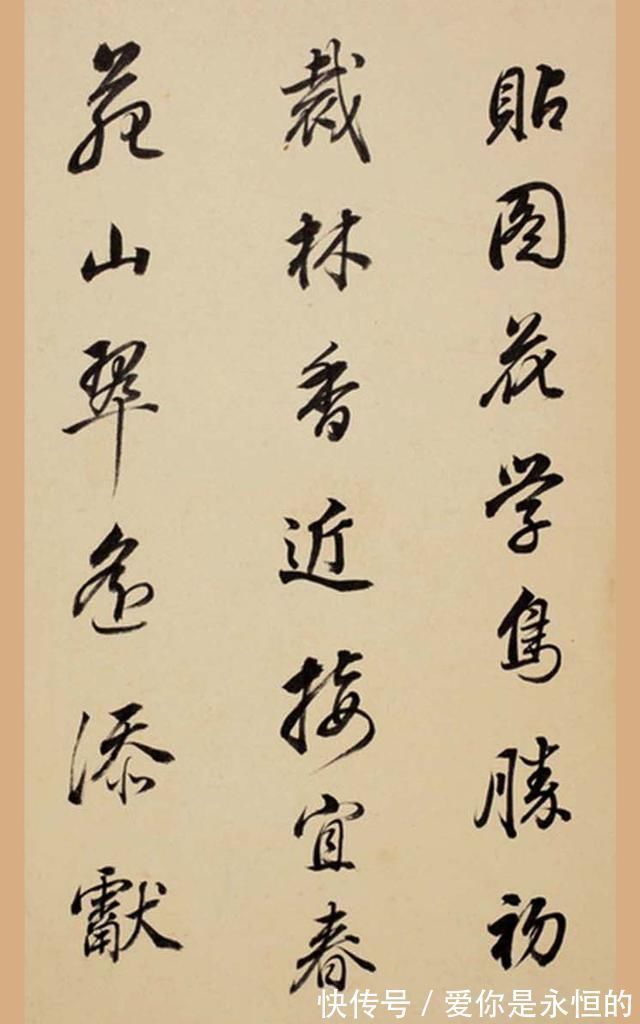 貼图花学鳥勝初
裁林香近接宜春
苑山翠遥添獻
快传号 / 爱你是永恒的